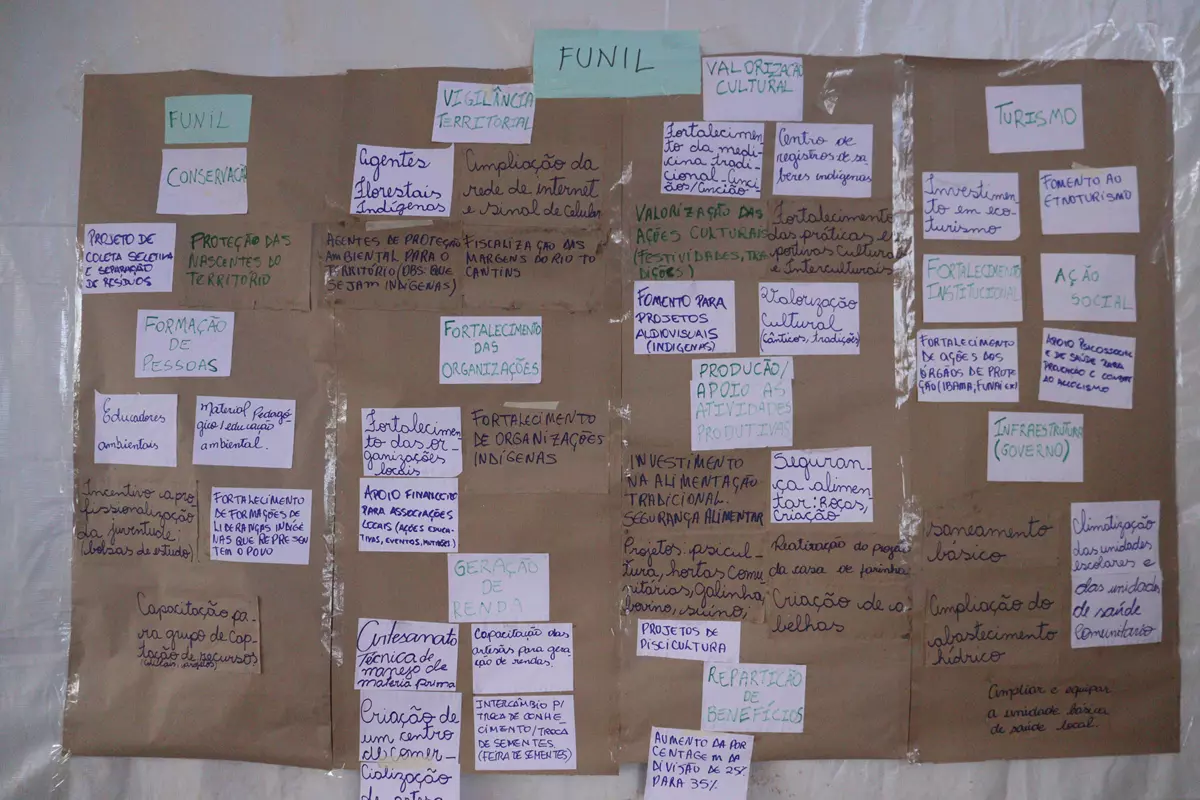 FUNIL
FUNIL
CONSERVAÇÃ
PROJETO DE
COLETA SELETIVA
E SEPARAÇÃO
DE RESÍDUOS
PROTEÇÃO DAS
NASCENTES DO
TERRITÓRIO
FORMAÇÃO
DE
PESSOAS
Educadores
ambientais
Material Pedagó-
gico/educação
ambiental.
Incentivo a pro
fissionalização
da juventude
(bolsas de estudo)
FORTALECIMENTO
DE FORMAÇÕES DE
LIDERANÇAS INDÍGE
NAS QUE REPRESEN
TEM O POVO
Capacitação pa-
ra grupo de Cap-
tação de recursos
VIGILÂNCIA
TERRITORIAL
Agentes
Florestais
Indígenas
Ampliação da
rede de internet
e sinal de Celular
AGENTES DE PROTEÇÃO
AMBIENTAL PARA O
TERRITÓRIO (OBS: QUE
SEJAM INDÍGENAS)
FISCALIZAÇÃO DAS
MARGENS DO RIO TO
CANTINS
FORTALECIMENTO
DAS
ORGANIZAÇÕES
Fortalecimen
to das or-
ganizações
locais
FORTALECIMENTO
DE ORGANIZAÇÕES
INDÍGENAS
APOIO FINANCEIRO
PARA ASSOCIAÇÕES
LOCAIS (AÇÕES EDUCA-
TIVAS, EVENTOS, MUTIRÕES)
GERAÇÃO
DE
RENDA
Artesanato
Técnica de
manejo de
matéria prima
Capacitação das
artesãs para gera-
ção de rendas.
Criação de
um centro
de comer-
cialização
de artesa
INTERCÂMBIO P/
TROCA DE CONHE
CIMENTO/TROCA
DE SEMENTES
(FEIRA DE SEMENTES)
VALORIZAÇÃO
CULTURAL
Fortalecimen
to da medi-
cina tradi-
cional-Anci-
ãos/Ancião-
Centro de
registros de sa-
beres indígenas
VALORIZAÇÃO DAS
AÇÕES CULTURAIS
(FESTIVIDADES, TRA
DIÇÕES)
Fortalecimento
das práticas es
portivas Culturais
e Interculturais
FOMENTO PARA
PROJETOS
AUDIOVISUAIS
(INDIGENAS)
Valorização
Cultural
(Cânticos, tradições)
PRODUÇÃO/
APOIO AS
ATIVIDADES
PRODUTIVAS
INVESTIMENTO
NA ALIMENTAÇÃO
TRADICIONAL.
SEGURANÇA ALIMENTAR
Seguran-
ça alimen-
tar: Roças,
Criação
Projetos: psicul-
tura, hortas comu
nitárias, galinha,
bovino, suíno,
Reativação do projeto
da casa de farinha
Criação de a
belhas
PROJETOS DE
PISCICULTURA
REPARTIÇÃO
DE
BENEFÍCIOS
AUMENTO DA POR
CENTAGEM DA
DIVISÃO DE 25%
PARA 35%
TURISMO
Investimen-
to em eco-
turismo
FOMENTO AO
ETNOTURISMO
FORTALECIMENTO
INSTITUCIONAL
AÇÃO
SOCIAL
FORTALECIMENTO
DE AÇÕES DOS
ÓRGÃOS DE PROTE
ÇÃO (IBAMA, FUNAI
APOIO PSICOSSOCIAL
E DE SAÚDE PARA
PREVENÇÃO E COMBATE
AO ALCOLISMO
INFRAESTRUTURA
(GOVERNO)
saneamento
básico
Climatização
das unidades
escolares e
das unidades
de saúde
comunitario
Ampliação do
abastecimento
hídrico
Ampliar e equipar
a unidade básica
de saúde local.